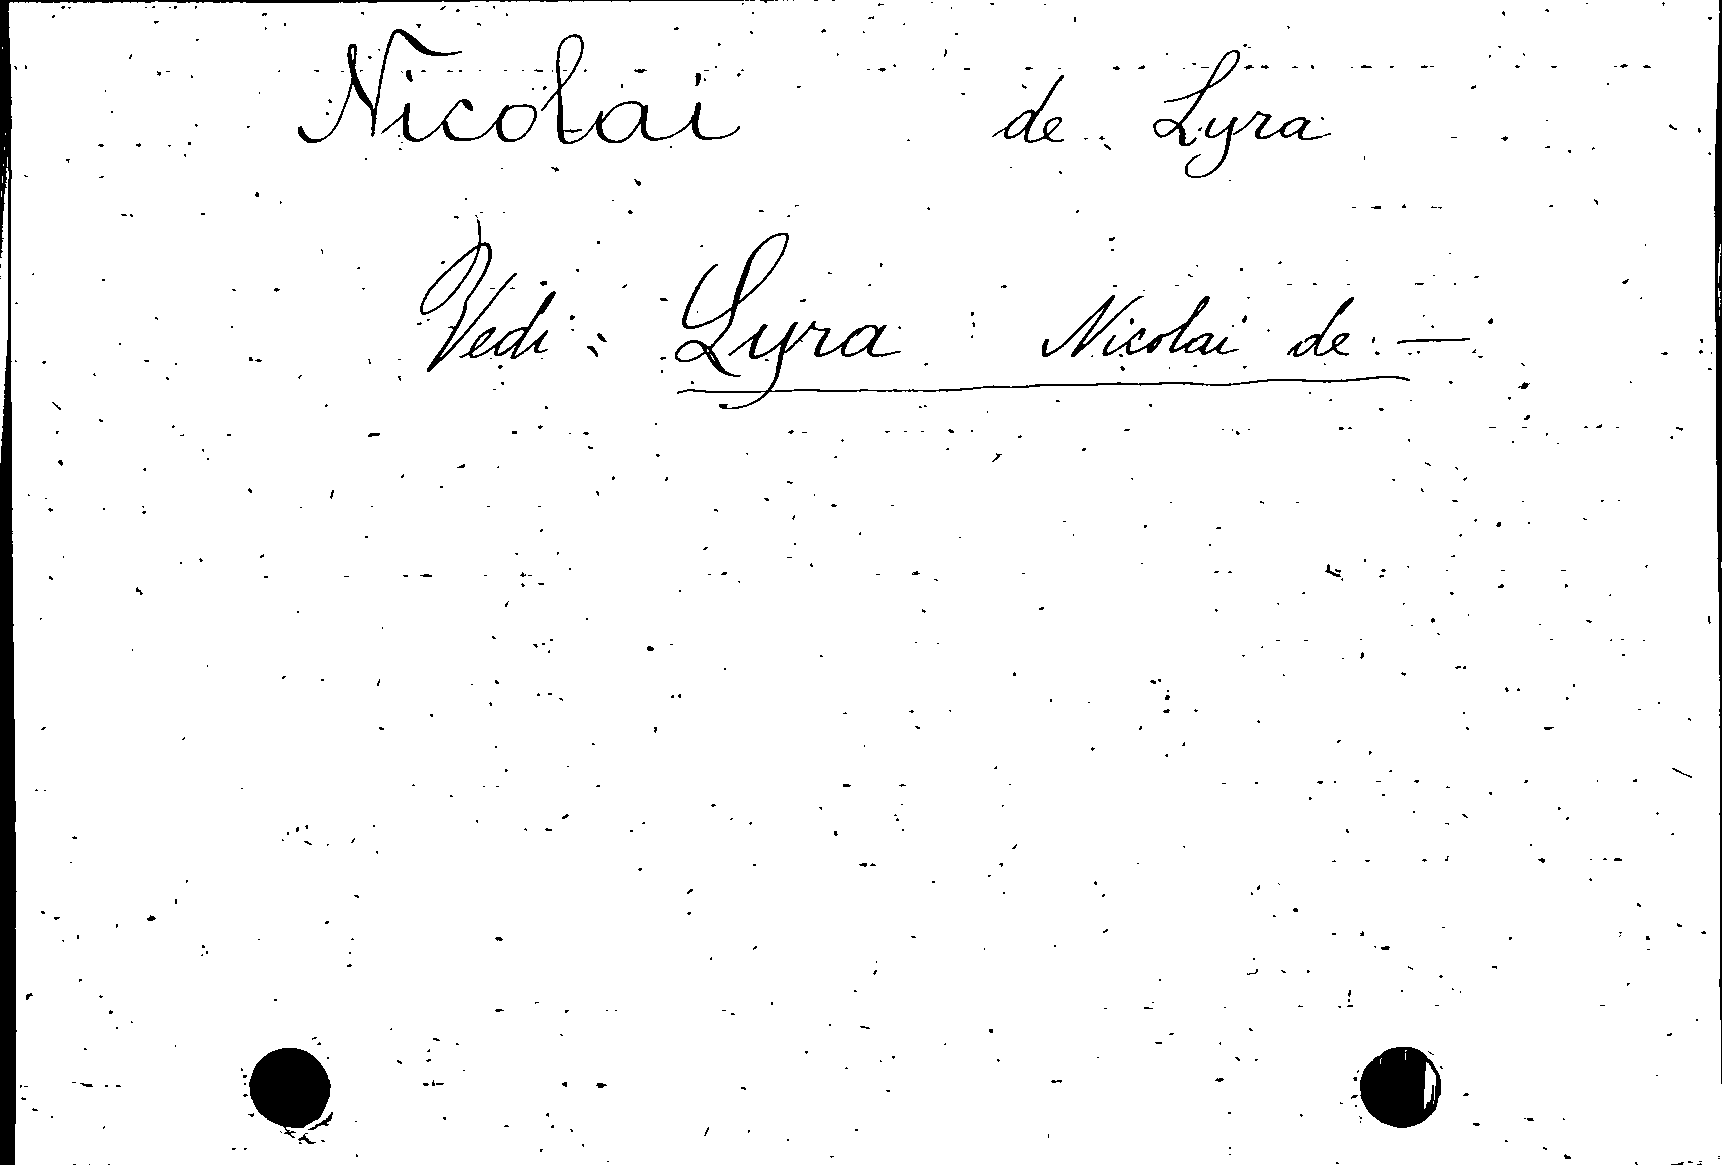 Nicolai de Lyra
Vedi: Lyra Nicolai de. —